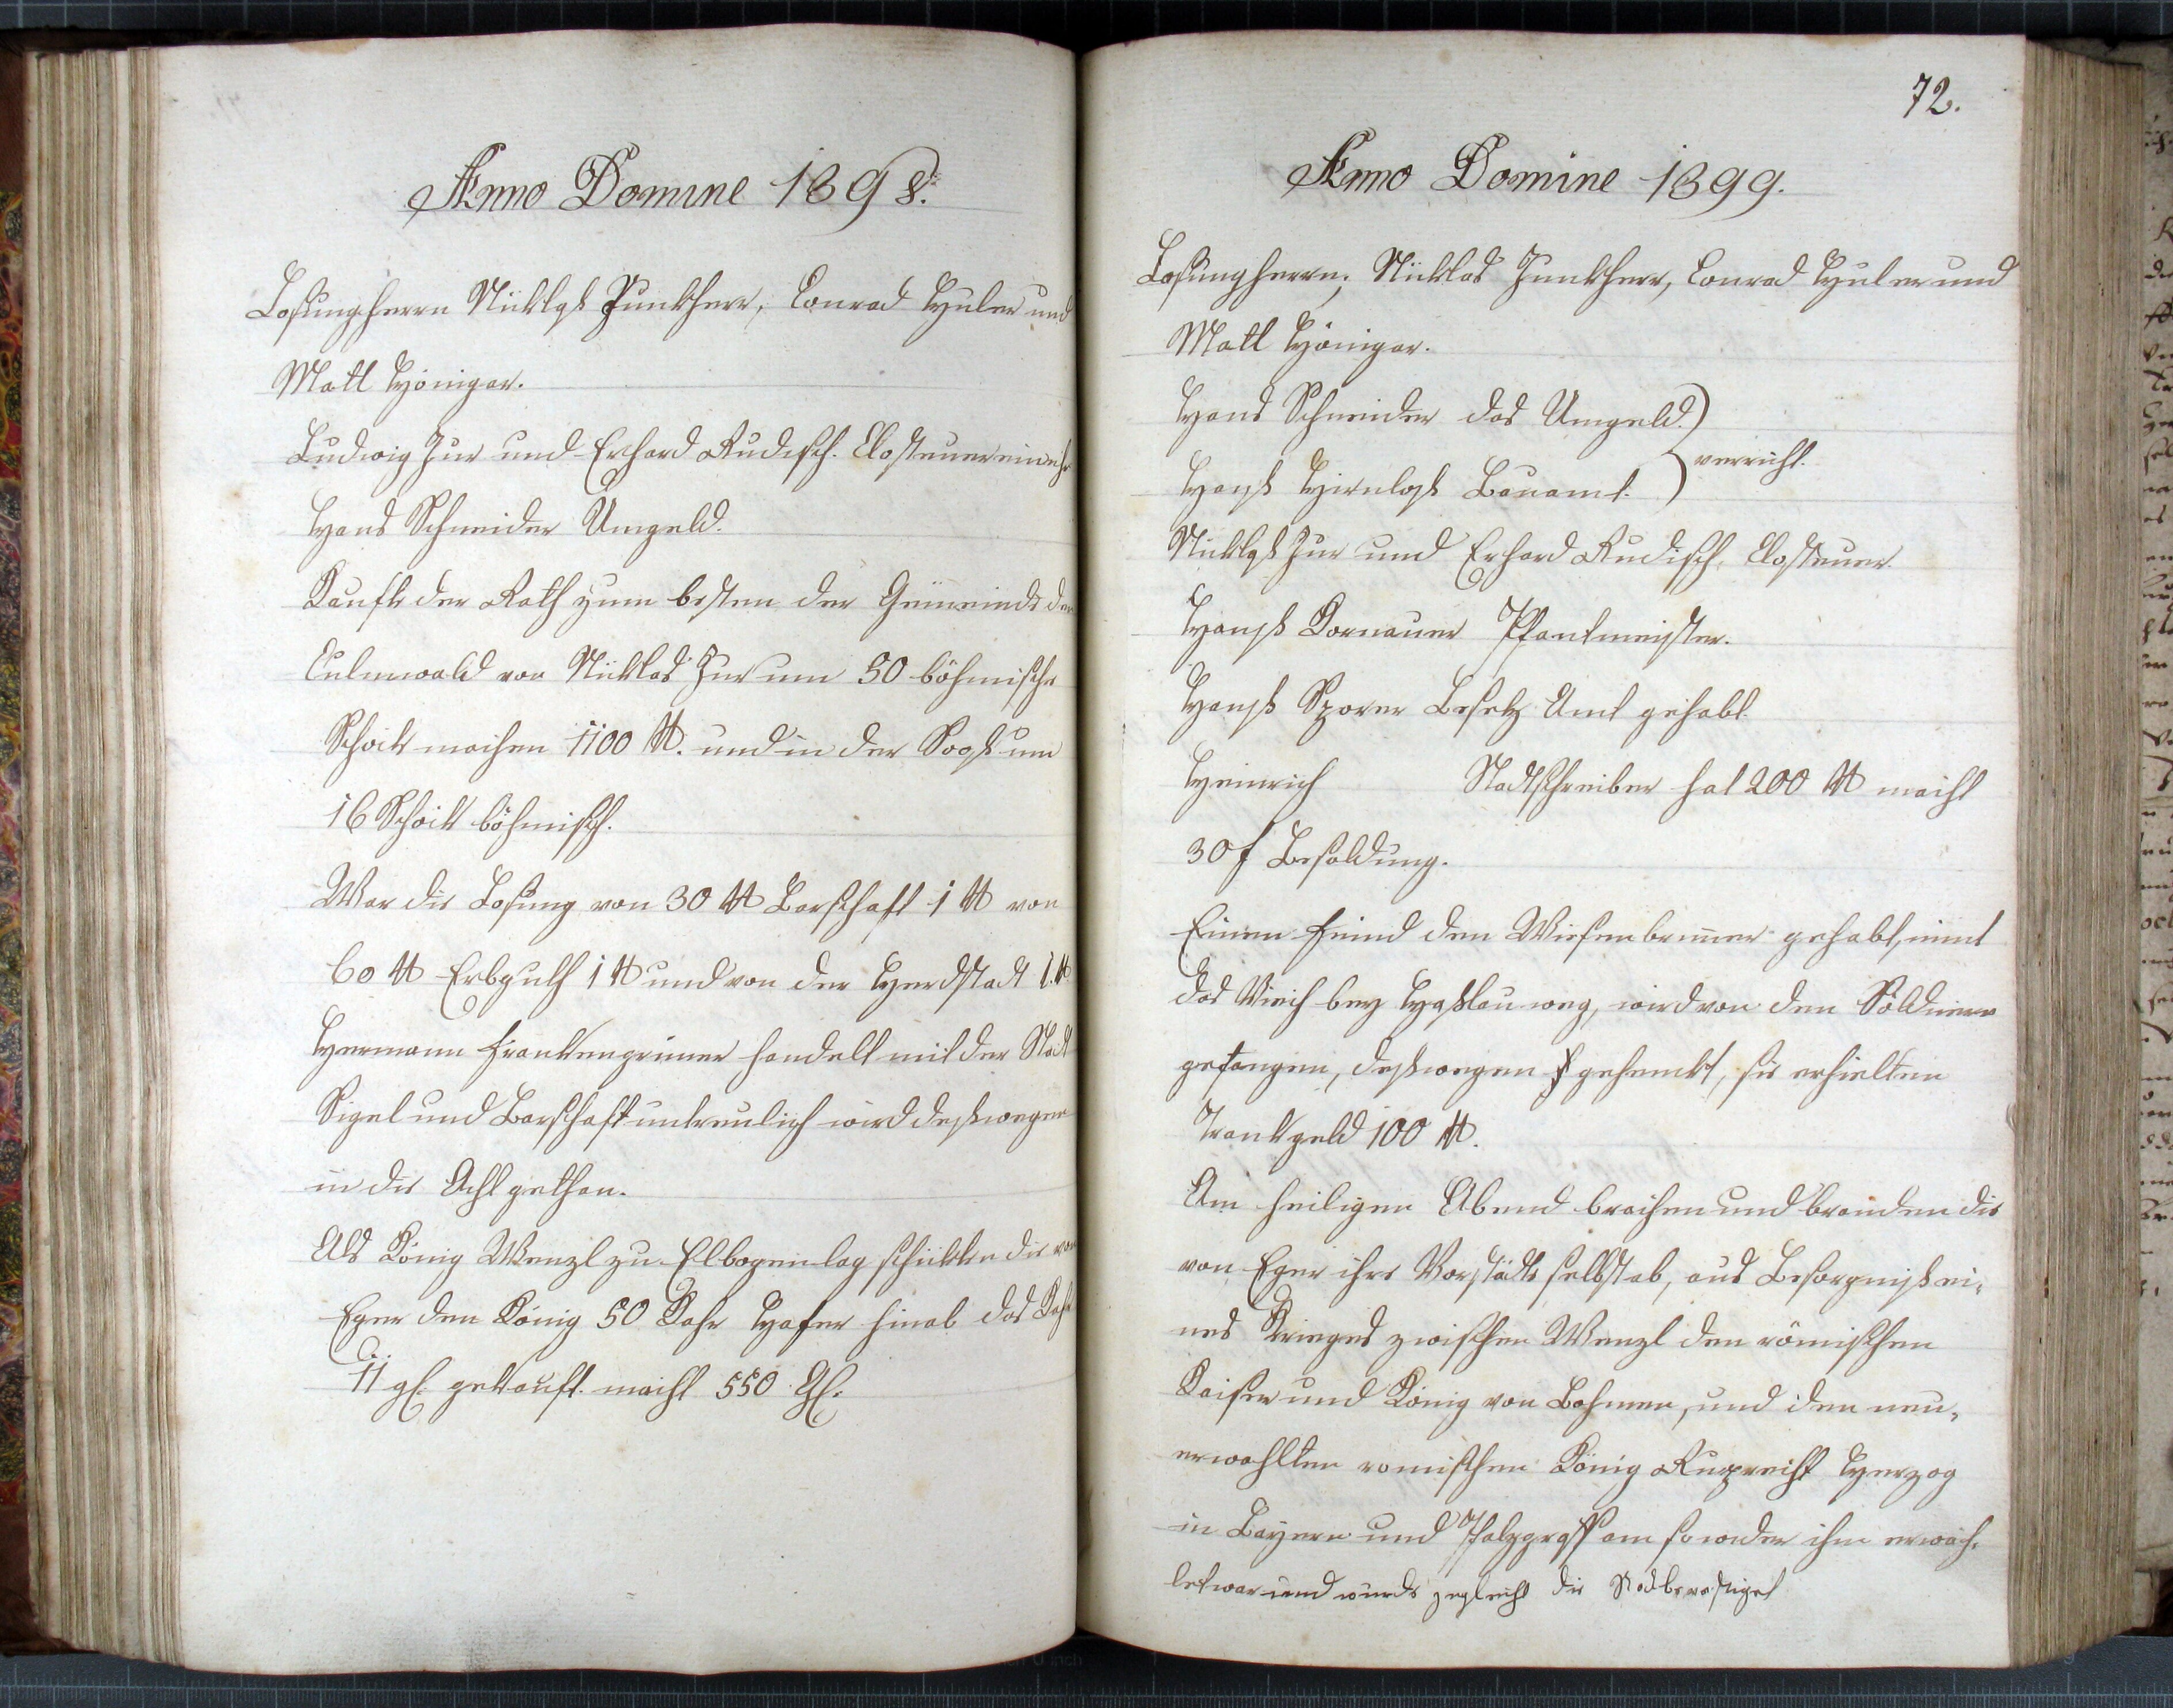 Anno Domine 1398.
Losungherrn Nicklas Junkherr, Conrad Huler und
Matl Höniger.
Ludwig Jur und Erhard Rudisch. Closteuer einnehr
Hans Schneider Umgeld.
Kaufte der Rath zum besten der Gemeinde den
Culmwald von Nicklas Jur um 50 böhmische
Schock machen 1100 ℔. und in der Sorg um
16 Schock böhmisch.
War die Losung von 30 ℔ Barschaft 1 ℔ von
60 ℔ Erbguth 1 ℔ und von der Herdstadt 1.℔
Hermann Frankengrüner handelt mit der Stadt
Sigel und Barschaft untreulich wird desswegen
in die Acht gethan.
Als König Wenzl zu Elbogen lag schickten die von
Eger dem König 50 Kahr Hafer hinab das Kahr
11 gl. gekauft. macht 550 Gl.
72.
Anno Domine 1399.
Losungherrn, Nicklas Junkherr, Conrad Huler und
Matl Höniger.
Hans Schneider das Umgeld.
verricht.
Hanss Hirnloss Bauamt.
Nicklass Jur und Erhard Rudisch, Closteuer.
Hanss Kornauer Pfantmeister.
Hanss Sporer Besetz Amt gehabt.
Heinrich Stadtschreiber hat 200 ℔ macht
30 f Besoldung.
Einen Feind den Wiesenbrunner gehabt, nimt
das Viech bey Hasslau weg, wird von den Söldnern
gefangen, desswegen gehenckt, sie erhielten
Trankgeld 100 ℔.
Am heiligen Abend brachen und branden die
von Eger ihre Vorstädte selbst ab, aus Besorgniss ei-
nes Krieges zwischen Wenzl den römischen
Kaiser und König von Bohmen, und den neu-
erwahlten romischen König Ruprecht Herzog
in Bayern und Pfalzgraff am so wider ihm erwäh-
let war und wurde zegleicht die Stadt